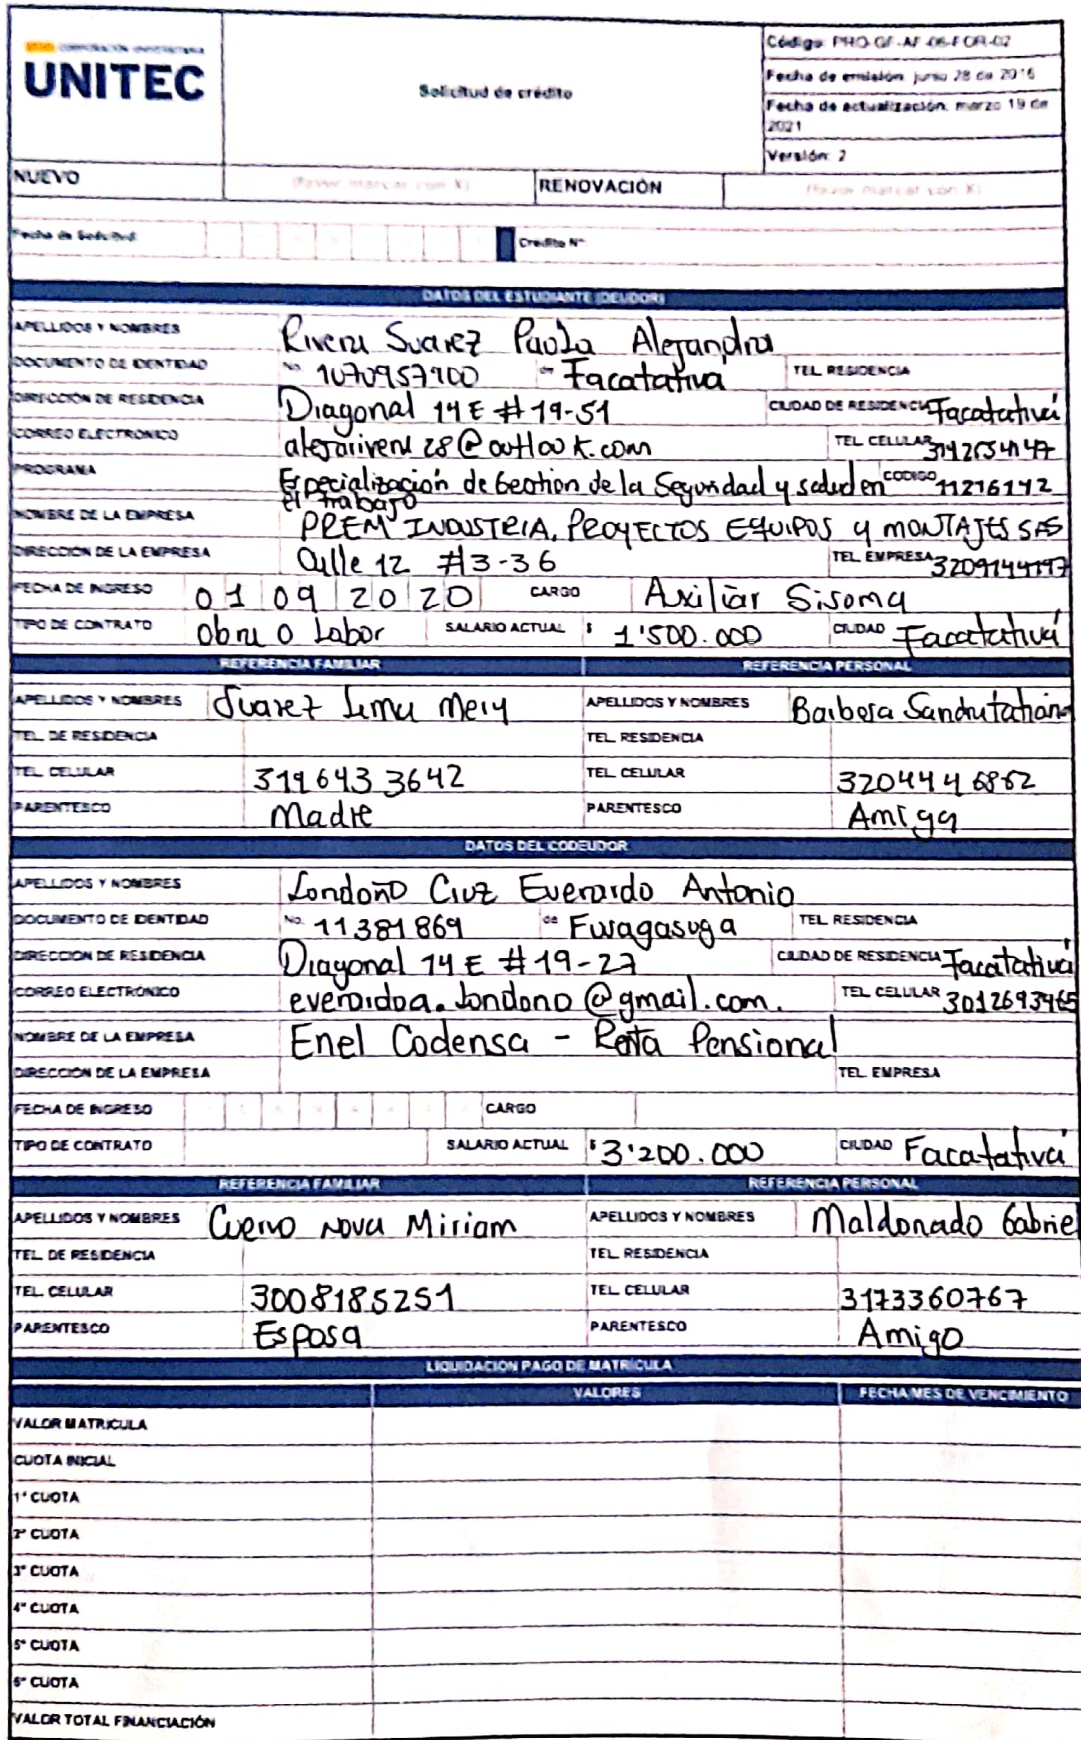 CORPORACIÓN UNIVERSITARIA
UNITEC
Solicitud de crédito
Código: PRO-GF-AF-06-FOR-02
Fecha de emisión: junio 28 de 2016
Fecha de actualización: marzo 19 de 2021
Versión: 2
NUEVO (favor marcar con X) RENOVACIÓN (favor marcar con X)
Fecha de Solicitud: Credito N°
DATOS DEL ESTUDIANTE (DEUDOR)
APELLIDOS Y NOMBRES Rivera Suarez Paola Alejandra
DOCUMENTO DE IDENTIDAD No. 1070957900 de Facatativá TEL. RESIDENCIA
DIRECCIÓN DE RESIDENCIA Diagonal 14 E # 19-51 CIUDAD DE RESIDENCIA Facatativá
CORREO ELECTRÓNICO alejarivera28@outlook.com TEL. CELULAR
PROGRAMA Especialización de Gestion de la Seguridad y salud en el trabajo CODIGO 11216142
NOMBRE DE LA EMPRESA PREM INDUSTRIA, PROYECTOS EQUIPOS y MONTAJES SAS
DIRECCION DE LA EMPRESA Calle 12 #3-36 TEL. EMPRESA
FECHA DE INGRESO 01 09 2020 CARGO Auxiliar Sisoma
TIPO DE CONTRATO Obra o Labor SALARIO ACTUAL $ 1'500.000 CIUDAD Facatativá
REFERENCIA FAMILIAR REFERENCIA PERSONAL
APELLIDOS Y NOMBRES Suarez Lima Mery APELLIDOS Y NOMBRES Barbosa Sandra tatiana
TEL. DE RESIDENCIA TEL. RESIDENCIA
TEL. CELULAR 3196433642 TEL. CELULAR 3204446862
PARENTESCO Madre PARENTESCO Amiga
DATOS DEL CODEUDOR
APELLIDOS Y NOMBRES Londoño Cruz Everardo Antonio
DOCUMENTO DE IDENTIDAD No. 11381869 de Fusagasuga TEL. RESIDENCIA
DIRECCION DE RESIDENCIA Diagonal 14 E # 19-27 CIUDAD DE RESIDENCIA Facatativá
CORREO ELECTRÓNICO everardoa.londono@gmail.com. TEL. CELULAR 3012693965
NOMBRE DE LA EMPRESA Enel Codensa - Renta Pensional
DIRECCION DE LA EMPRESA TEL. EMPRESA
FECHA DE INGRESO CARGO
TIPO DE CONTRATO SALARIO ACTUAL $ 3'200.000 CIUDAD Facatativá
REFERENCIA FAMILIAR REFERENCIA PERSONAL
APELLIDOS Y NOMBRES Cuervo Nova Miriam APELLIDOS Y NOMBRES Maldonado Gabriel
TEL. DE RESIDENCIA TEL. RESIDENCIA
TEL. CELULAR 3008185251 TEL. CELULAR 3173360767
PARENTESCO Esposa PARENTESCO Amigo
LIQUIDACION PAGO DE MATRICULA
VALORES FECHA MES DE VENCIMIENTO
VALOR MATRICULA
CUOTA INICIAL
1° CUOTA
2° CUOTA
3° CUOTA
4° CUOTA
5° CUOTA
6° CUOTA
VALOR TOTAL FINANCIACIÓN